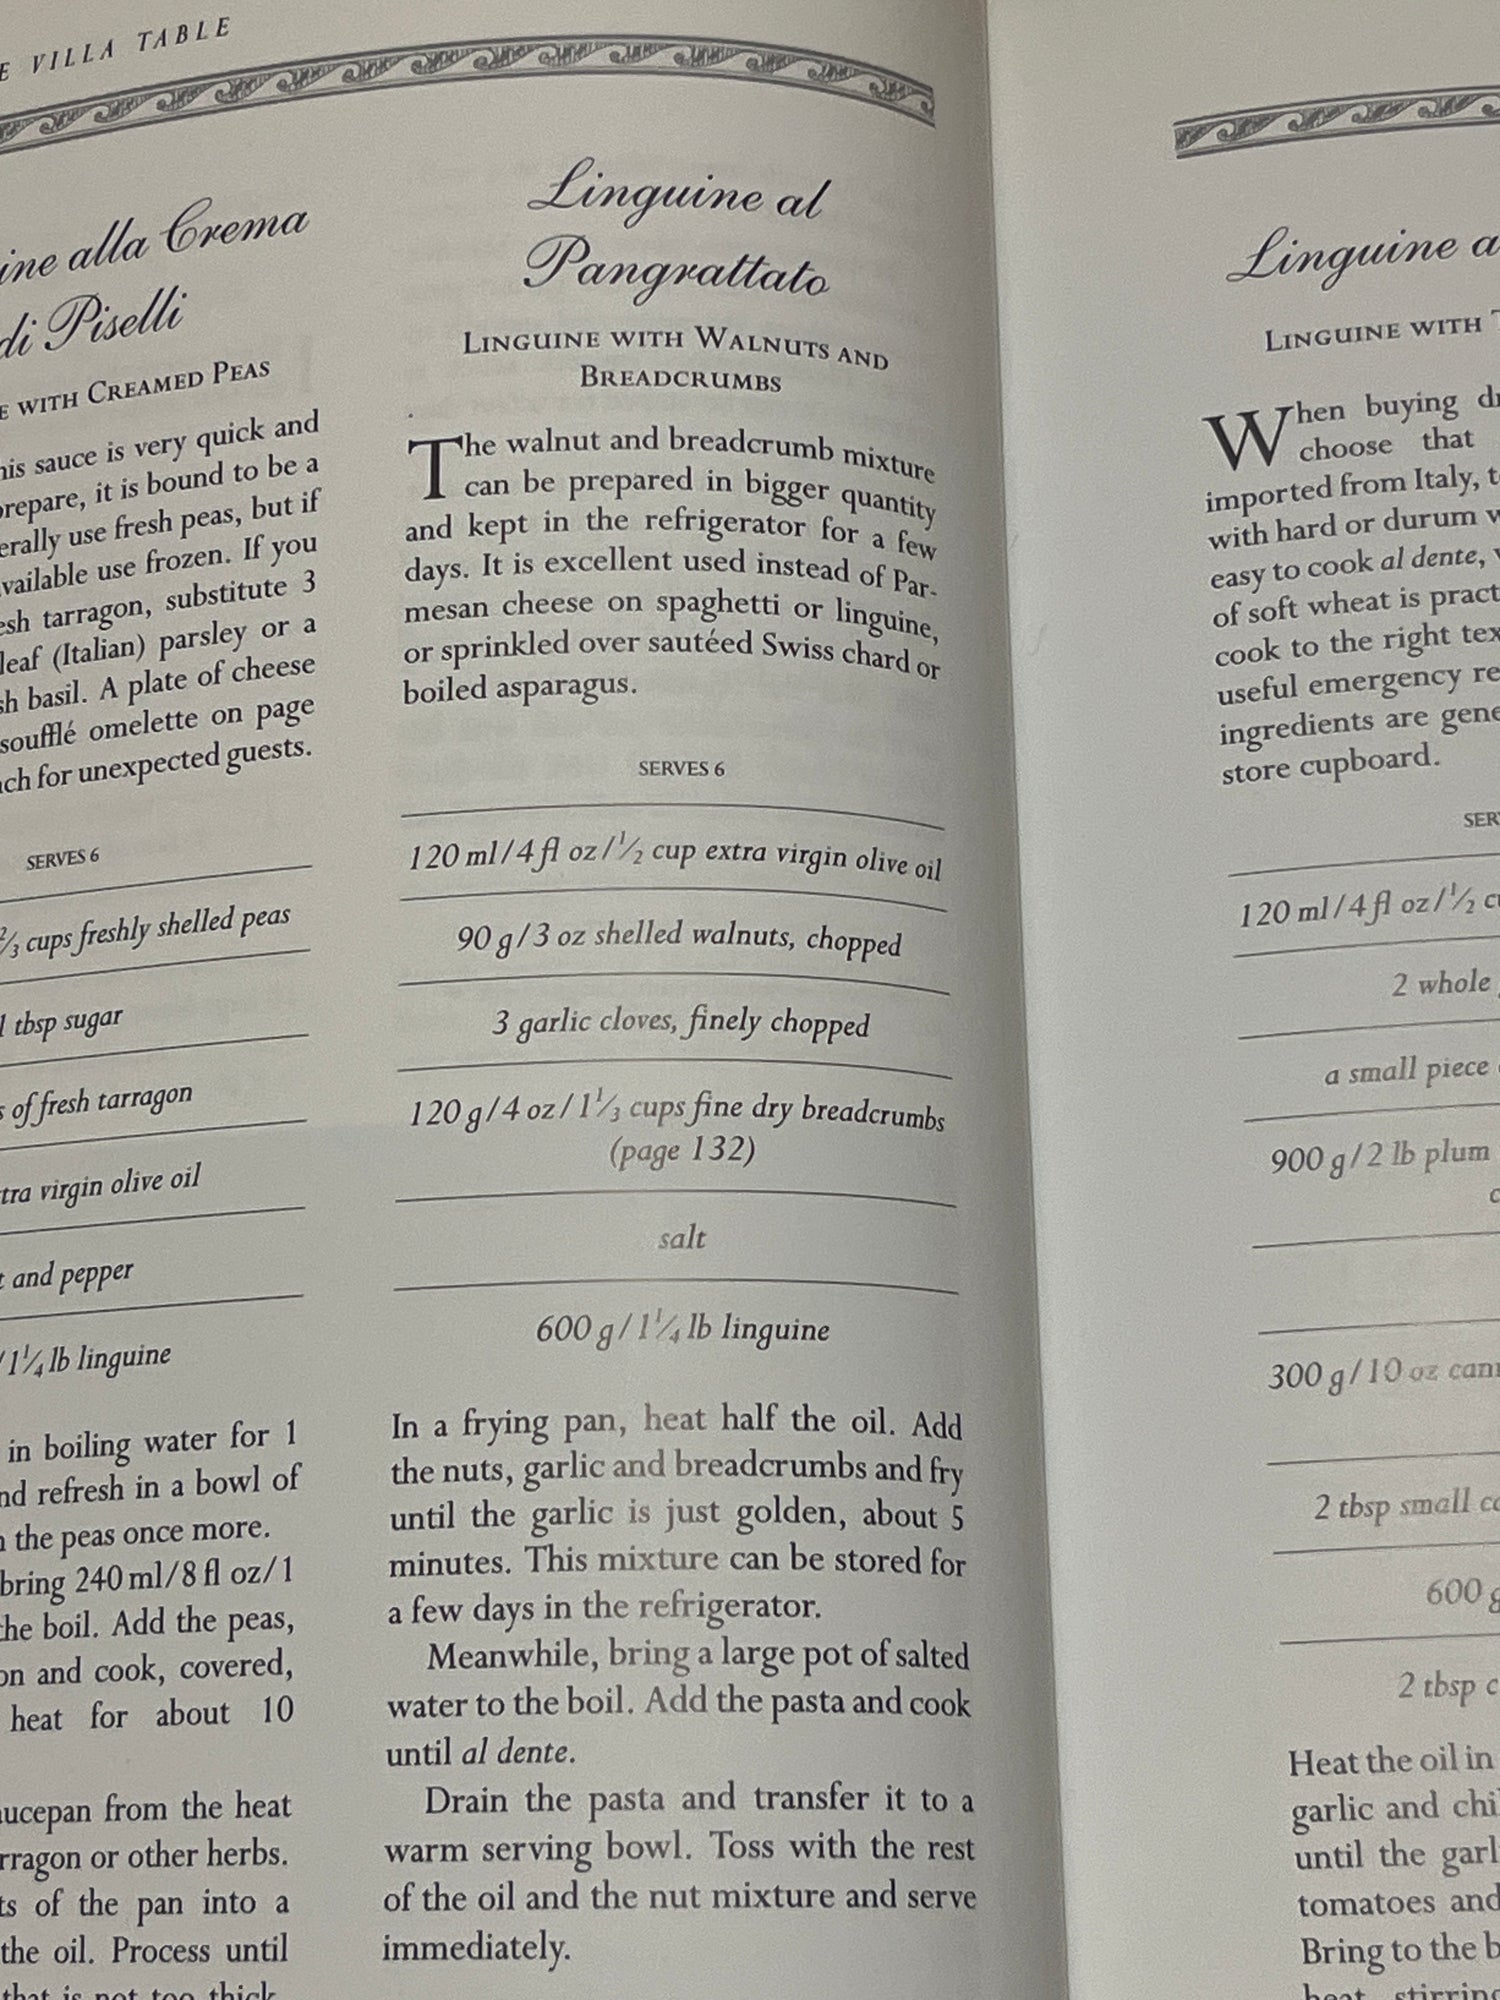 VILLA TABLE
alla Crema
di Piselli
WITH CREAMED PEAS
sauce is very quick and
prepare, it is bound to be a
use fresh peas, but if
available use frozen. If you
tarragon, substitute 3
leaf (Italian) parsley or a
basil. A plate of cheese
soufflé omelette on page
for unexpected guests.
SERVES 6
2/3 cups freshly shelled peas
1 tbsp sugar
of fresh tarragon
virgin olive oil
and pepper
/1 1/4 lb linguine
in boiling water for 1
refresh in a bowl of
the peas once more.
bring 240 ml/8 fl oz/1
the boil. Add the peas,
and cook, covered,
heat for about 10
from the heat
or other herbs.
of the pan into a
the oil. Process until
that is not too thick.
Linguine al
Pangrattato
LINGUINE WITH WALNUTS AND
BREADCRUMBS
The walnut and breadcrumb mixture
can be prepared in bigger quantity
and kept in the refrigerator for a few
days. It is excellent used instead of Par-
mesan cheese on spaghetti or linguine,
or sprinkled over sautéed Swiss chard or
boiled asparagus.
SERVES 6
120 ml/4 fl oz/1/2 cup extra virgin olive oil
90 g/3 oz shelled walnuts, chopped
3 garlic cloves, finely chopped
120 g/4 oz/1 1/3 cups fine dry breadcrumbs
(page 132)
salt
600 g/1 1/4 lb linguine
In a frying pan, heat half the oil. Add
the nuts, garlic and breadcrumbs and fry
until the garlic is just golden, about 5
minutes. This mixture can be stored for
a few days in the refrigerator.
Meanwhile, bring a large pot of salted
water to the boil. Add the pasta and cook
until al dente.
Drain the pasta and transfer it to a
warm serving bowl. Toss with the rest
of the oil and the nut mixture and serve
immediately.
Linguine
LINGUINE WITH
When buying
choose that
imported from Italy,
with hard or durum
easy to cook al dente,
of soft wheat is
cook to the right
useful emergency
ingredients are
store cupboard.
120 ml/4 fl oz/1/2
2 whole
a small piece
900 g/2 lb plum
300 g/10 oz
2 tbsp small
600 g
2 tbsp
Heat the oil in
garlic and
until the
tomatoes and
Bring to the
heat, stirring